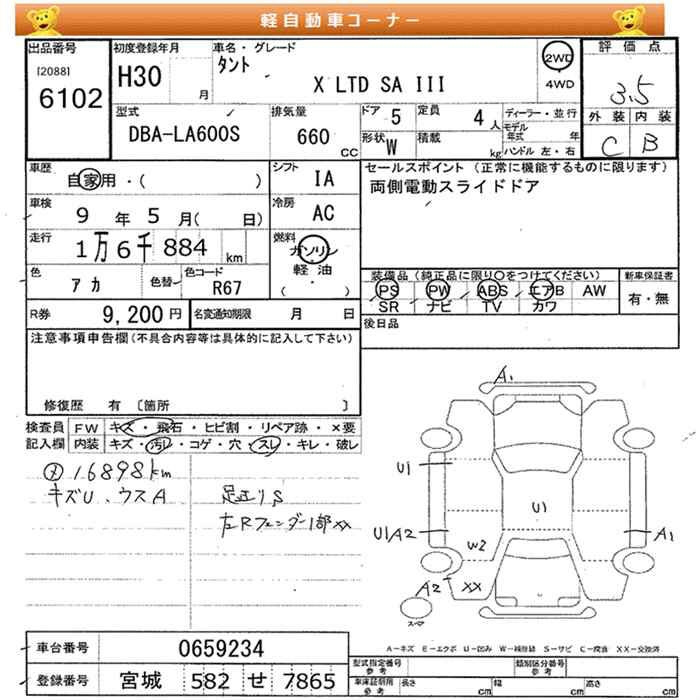 軽自動車コーナー
出品番号
[2088]
6102
初度登録年月
H30 月
車名・グレード
タント
X LTD SA III
2WD
4WD
評価点
3.5
外装 内装
C B
型式
DBA-LA600S
排気量
660 cc
ドア 5
定員 4 人
形状 W
積載 kg
ディーラー・並行
モデル年式 年
ハンドル 左・右
車歴
自家用・( )
シフト
IA
車検
9 年 5 月( 日)
冷房
AC
走行
1万6千884 km
燃料
ガソリン
軽油
( )
色
アカ
色替
色コード
R67
R券
9,200 円
名変通知期限 月 日
セールスポイント (正常に機能するものに限ります)
両側電動スライドドア
装備品 (純正品に限り○をつけてください)
PS PW ABS エアB AW
SR ナビ TV カワ
新車保証書
有・無
後日品
注意事項申告欄 (不具合内容等は具体的に記入して下さい)
修復歴 有 〔箇所 〕
検査員記入欄
FW キズ・飛石・ヒビ割・リペア跡・×要
内装 キズ・汚レ・コゲ・穴・スレ・キレ・破レ
メ 16898km
キズU、ウスA
足廻りS
左Rフェンダー1部XX
A1
U1
U1
U1/A2
A1
W2
A2
XX
スペア
A-キズ E-エクボ U-凹み W-補修跡 S-サビ C-腐食 XX-交換済
車台番号
0659234
登録番号
宮城 582 せ 7865
型式指定番号
参考
類別区分番号
参考
車庫証明用
参考
長さ cm
幅 cm
高さ cm